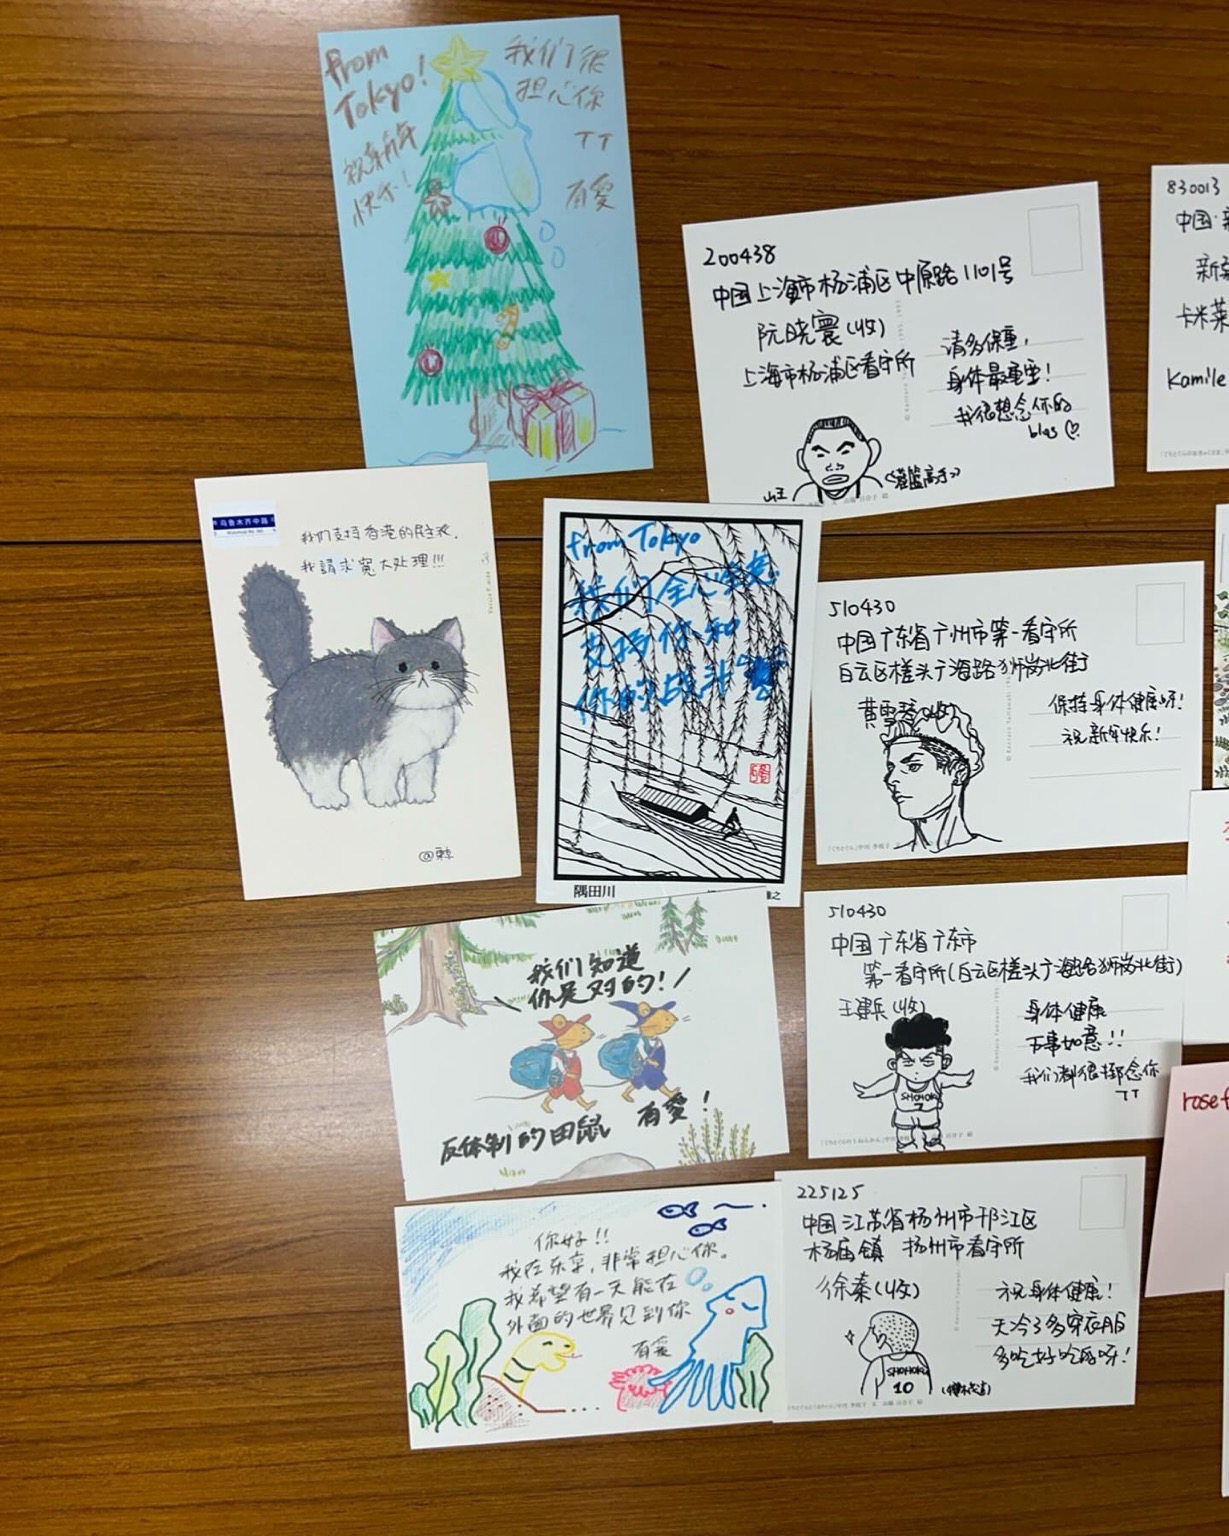 from
Tokyo!
祝新年
快乐!
我们很
担心你
TT
有愛
200438
中国上海市杨浦区中原路1101号
阮晓寰(收)
上海市杨浦区看守所
请多保重,
身体最重要!
我很想念你的
blog
山王
<灌篮高手>
830013
中国·新
新
卡米莱
Kamile
乌鲁木齐中路
我们支持香港的民主派.
我請求寬大处理!!!
from Tokyo
我们全心全意
支持你和
你的战斗
隅田川
510430
中国广东省广州市第一看守所
白云区槎头广海路狮岗北街
黄雪琴(收)
保持身体健康呀!
祝新年快乐!
510430
中国广东省广东市
第一看守所(白云区槎头广海路狮岗北街)
王建兵(收)
身体健康
万事如意!!
我们都很挪念你
TT
SHOHOKU
7
我们知道
你是对的!
反体制的田鼠 有愛!
rose
225125
中国江苏省杨州市邗江区
杨庙镇 扬州市看守所
徐秦(收)
祝身体健康!
天冷了多穿衣服
多吃好吃的呀!
SHOHOKU
10
你好!!
我在东京,非常担心你。
我希望有一天能在
外面的世界见到你
有愛